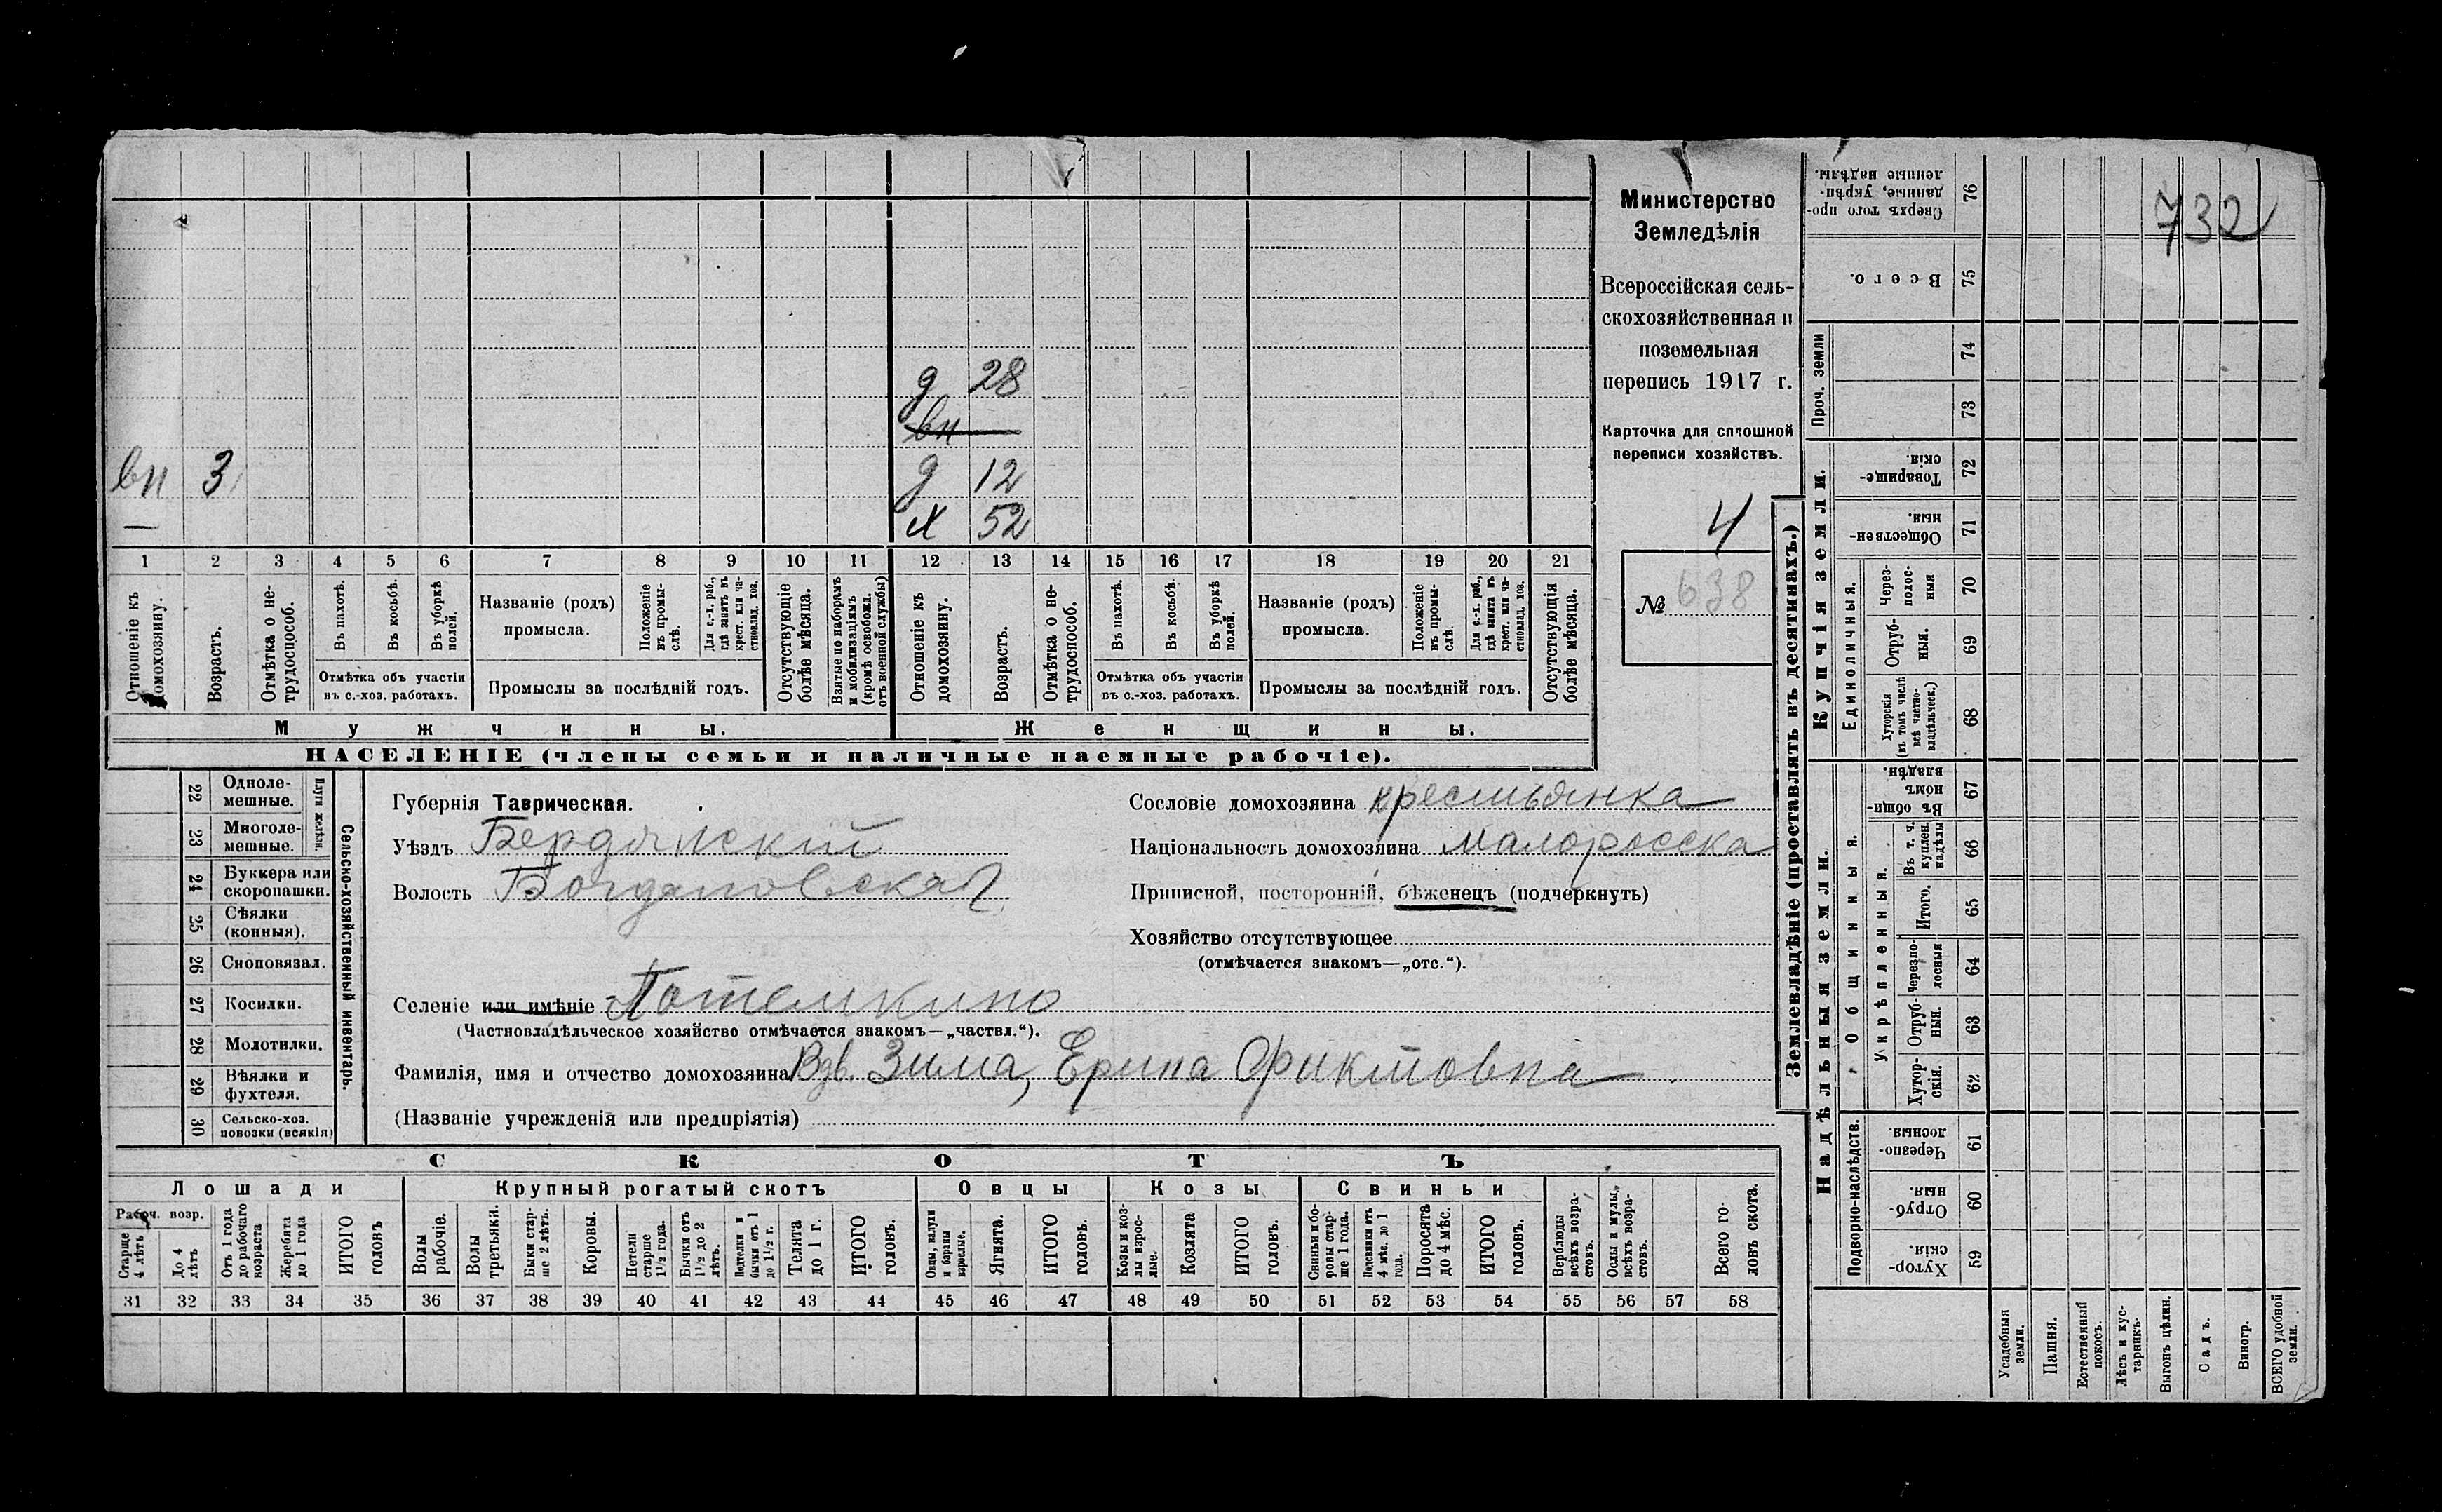 732
Министерство
Земледѣлія
Всероссійская сель-
скохозяйственная и
поземельная
перепись 1917 г.
Карточка для сплошной
переписи хозяйствъ.
4
№ 638
д 28
вн
вн 3
д 12
— х 52
1 2 3 4 5 6 7 8 9 10 11 12 13 14 15 16 17 18 19 20 21
Отношеніе къ домохозяину.
Возрастъ.
Отмѣтка о не-трудоспособ.
Въ пахотѣ.
Въ косьбѣ.
Въ уборкѣ полей.
Отмѣтка объ участіи
въ с.-хоз. работахъ.
Названіе (родъ)
промысла.
Положеніе въ промы-слѣ.
Для с.-х. раб., гдѣ занятъ въ крест. или ча-стновлад. хоз.
Промыслы за послѣдній годъ.
Отсутствующіе болѣе мѣсяца.
Взятые по наборамъ и мобилизаціямъ (кромѣ освобожд. отъ военной службы)
Отношеніе къ домохозяину.
Возрастъ.
Отмѣтка о не-трудоспособ.
Въ пахотѣ.
Въ косьбѣ.
Въ уборкѣ полей.
Отмѣтка объ участіи
въ с.-хоз. работахъ.
Названіе (родъ)
промысла.
Положеніе въ промы-слѣ.
Для с.-х. раб., гдѣ занята въ крест. или ча-стновлад. хоз.
Промыслы за послѣдній годъ.
Отсутствующія болѣе мѣсяца.
Мужчины. Женщины.
НАСЕЛЕНІЕ (члены семьи и наличные наемные рабочіе).
22 Одноле-мешные.
23 Многоле-мешные.
Плуги желѣзн.
24 Буккера или скоропашки.
25 Сѣялки (конныя).
26 Сноповязал.
27 Косилки.
28 Молотилки.
29 Вѣялки и фухтеля.
30 Сельско-хоз. повозки (всякія)
Сельско-хозяйственный инвентарь.
Губернія Таврическая.
Уѣздъ Бердянскій
Волость Богдановская
Сословіе домохозяина крестьянка
Національность домохозяина малоросска
Приписной, посторонній, бѣженецъ (подчеркнуть)
Хозяйство отсутствующее
(отмѣчается знакомъ—„отс.“).
Селеніе или имѣніе Потемкино
(Частновладѣльческое хозяйство отмѣчается знакомъ—„частвл.“).
Фамилія, имя и отчество домохозяина Вдв. Зима, Ерина Фиктовна
(Названіе учрежденія или предпріятія)
СКОТЪ
Лошади Крупный рогатый скотъ Овцы Козы Свиньи
Рабоч. возр.
Старше 4 лѣтъ
До 4 лѣтъ
Отъ 1 года до рабочаго возраста
Жеребята до 1 года
ИТОГО головъ
Волы рабочіе.
Волы третьяки.
Быки стар-ше 2 лѣтъ.
Коровы.
Нетели старше 1½ года.
Бычки отъ 1½ до 2 лѣтъ.
Подтелки и бычки отъ 1 до 1½ г.
Телята до 1 г.
ИТОГО головъ.
Овцы, валухи и бараны взрослые.
Ягнята.
ИТОГО головъ.
Козы и коз-лы взрос-лые.
Козлята
ИТОГО головъ.
Свиньи и бо-ровы стар-ше 1 года.
Подсвинки отъ 4 мѣс. до 1 года.
Поросята до 4 мѣс.
ИТОГО головъ.
Верблюды всѣхъ возра-стовъ.
Ослы и мулы, всѣхъ возра-стовъ.
Всего го-ловъ скота.
31 32 33 34 35 36 37 38 39 40 41 42 43 44 45 46 47 48 49 50 51 52 53 54 55 56 57 58
Землевладѣніе (проставлять въ десятинахъ.)
Надѣльныя земли. Купчія земли. Проч. земли
Подворно-наслѣдств.
Общинныя.
Укрѣпленныя.
Единоличныя.
Хутор-скія. 59
Отруб-ныя. 60
Черезпо-лосныя. 61
Хутор-скія. 62
Отруб-ныя. 63
Черезпо-лосныя 64
Итого. 65
Въ т. ч. куплен. надѣлы 66
Въ общи-номъ владѣн. 67
Хуторскія (въ томъ числѣ всѣ частно-владѣльчек.) 68
Отруб-ныя. 69
Через-полос-ныя 70
Обществен-ныя. 71
Товарище-скія. 72
73
74
Всего. 75
Сверхъ того про-данные, укрѣп-ленные надѣлы. 76
Усадебныя земли.
Пашня.
Естественный покосъ.
Лѣсъ и кус-тарникъ.
Выгонъ цѣлин.
Садъ.
Виногр.
ВСЕГО удобной земли.